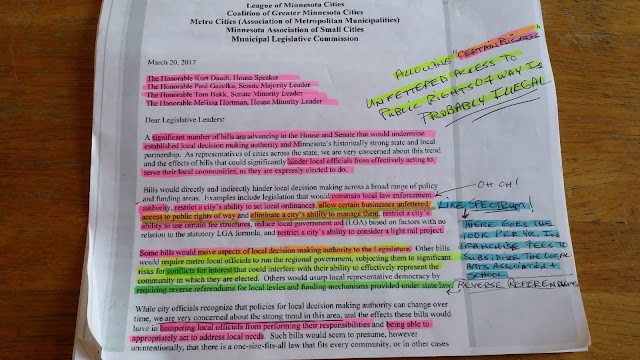 League of Minnesota Cities
Coalition of Greater Minnesota Cities
Metro Cities (Association of Metropolitan Municipalities)
Minnesota Association of Small Cities
Municipal Legislative Commission
March 20, 2017
The Honorable Kurt Daudt, House Speaker
The Honorable Paul Gazelka, Senate Majority Leader
The Honorable Tom Bakk, Senate Minority Leader
The Honorable Melissa Hortman, House Minority Leader
ALLOWING "CERTAIN
UNFETTERED ACCESS TO
PUBLIC RIGHTS OF WAY IS
PROBABLY ILLEGAL
Dear Legislative Leaders:
A significant number of bills are advancing in the House and Senate that would undermine
established local decision making authority and Minnesota's historically strong state and local
partnership. As representatives of cities across the state, we are very concerned about this trend
and the effects of bills that could significantly hinder local officials from effectively acting to
serve their local communities, as they are expressly elected to do.
Bills would directly and indirectly hinder local decision making across a broad range of policy
and funding areas. Examples include legislation that would constrain local law enforcement
authority, restrict a city's ability to set local ordinances, allow certain businesses unfettered
access to public rights of way and eliminate a city's ability to manage them, restrict a city's
ability to use certain fee structures, reduce local government aid (LGA) based on factors with no
relation to the statutory LGA formula, and restrict a city's ability to consider a light rail project.
OH OH!
LIKE SPECTRUM!
THERE GOES THE
PER YR. IN
FRANCHISE FEES TO
SUBSIDIZE THE LOCAL
ARTS ASSOCIATION &
Some bills would move aspects of local decision making authority to the Legislature. Other bills
would require metro local officials to run the regional government, subjecting them to significant
risks for conflicts for interest that could interfere with their ability to effectively represent the
community in which they are elected. Others would usurp local representative democracy by
requiring reverse referendums for local levies and funding mechanisms provided under state law.
REVERSE REFERENDUMS
While city officials recognize that policies for local decision making authority can change over
time, we are very concerned about the strong trend in this area, and the effects these bills would
have in hampering local officials from performing their responsibilities and being able to
appropriately act to address local needs. Such bills would seem to presume, however
unintentionally, that there is a one-size-fits-all law that fits every community, or in other cases